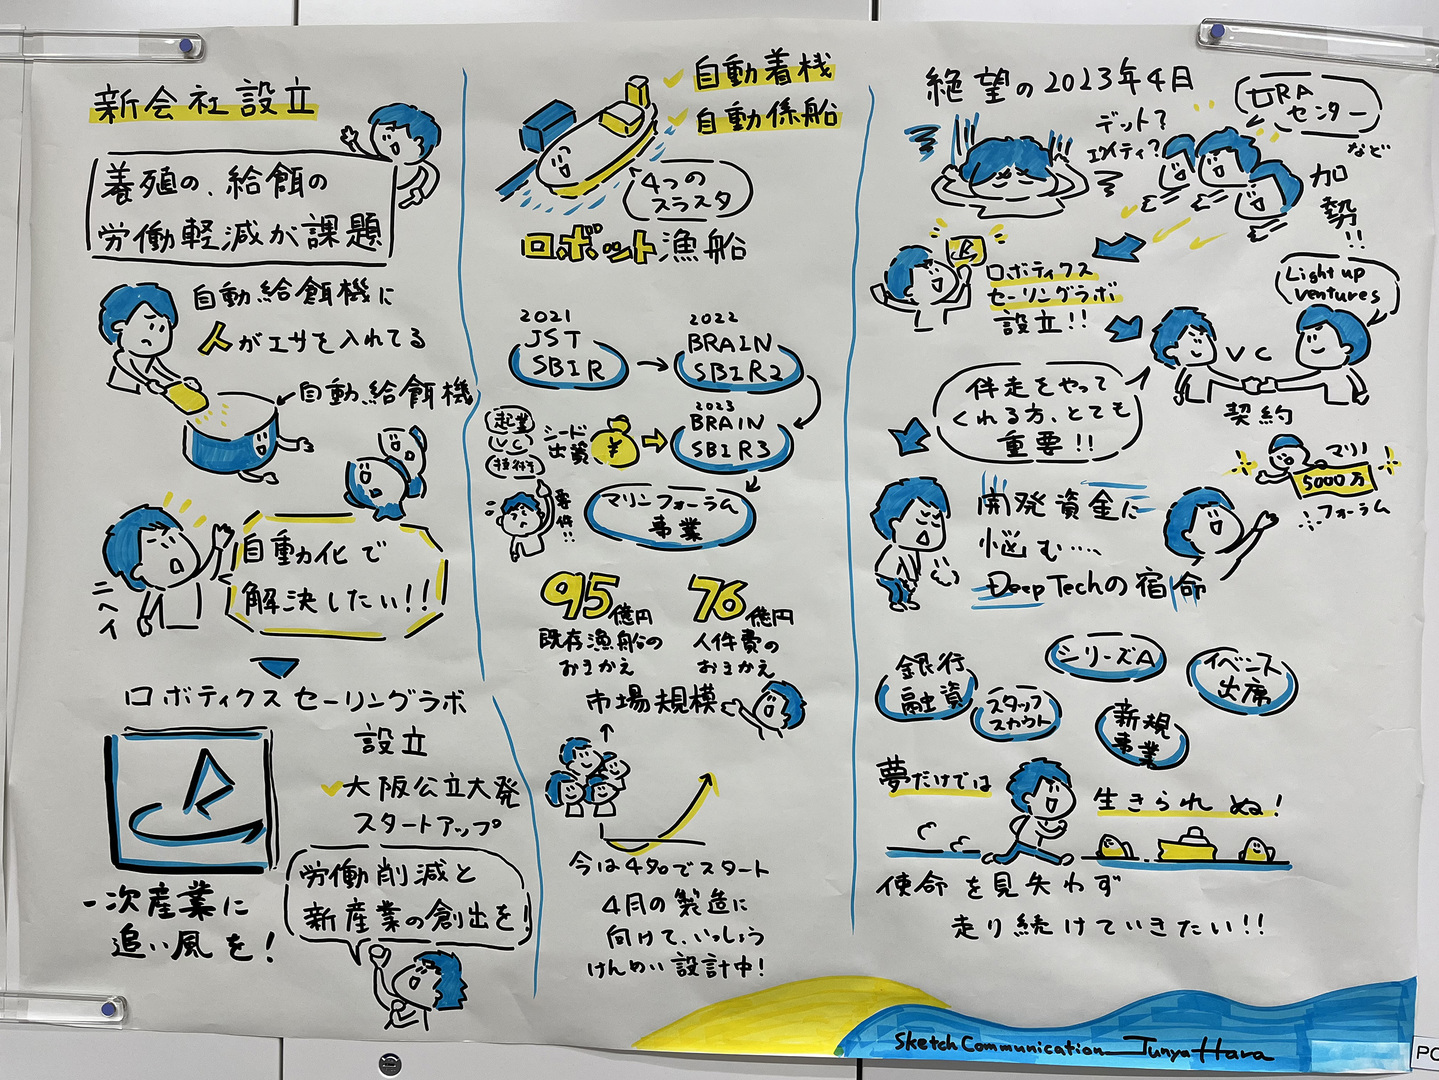 新会社設立
養殖の、給餌の
労働軽減が課題
自動給餌機に
人がエサを入れてる
自動給餌機
ニヘイ
自動化で
解決したい!!
ロボティクスセーリングラボ
設立
大阪公立大発
スタートアップ
一次産業に
追い風を!
労働削減と
新産業の創出を!
自動着桟
自動係船
4つの
スラスタ
ロボット漁船
2021
JST
SBIR
2022
BRAIN
SBIR2
起業
VC
シード
出資
¥
2023
BRAIN
SBIR3
条件!!
マリンフォーラム
事業
95億円
既存漁船の
おきかえ
76億円
人件費の
おきかえ
市場規模
今は4名でスタート
4月の製造に
向けて、いっしょう
けんめい設計中!
絶望の2023年4月
デット?
エクイティ?
URA
センター
など
加勢!!
ロボティクス
セーリングラボ
設立!!
Light up
ventures
VC
契約
伴走をやって
くれる方、とても
重要!!
マリノ
5000万
フォーラム
開発資金に
悩む....
DeepTechの宿命
銀行
融資
スタッフ
スカウト
シリーズA
新規
事業
イベント
出席
夢だけでは
生きられぬ!
使命を見失わず
走り続けていきたい!!
Sketch Communication Junya Hara
PC